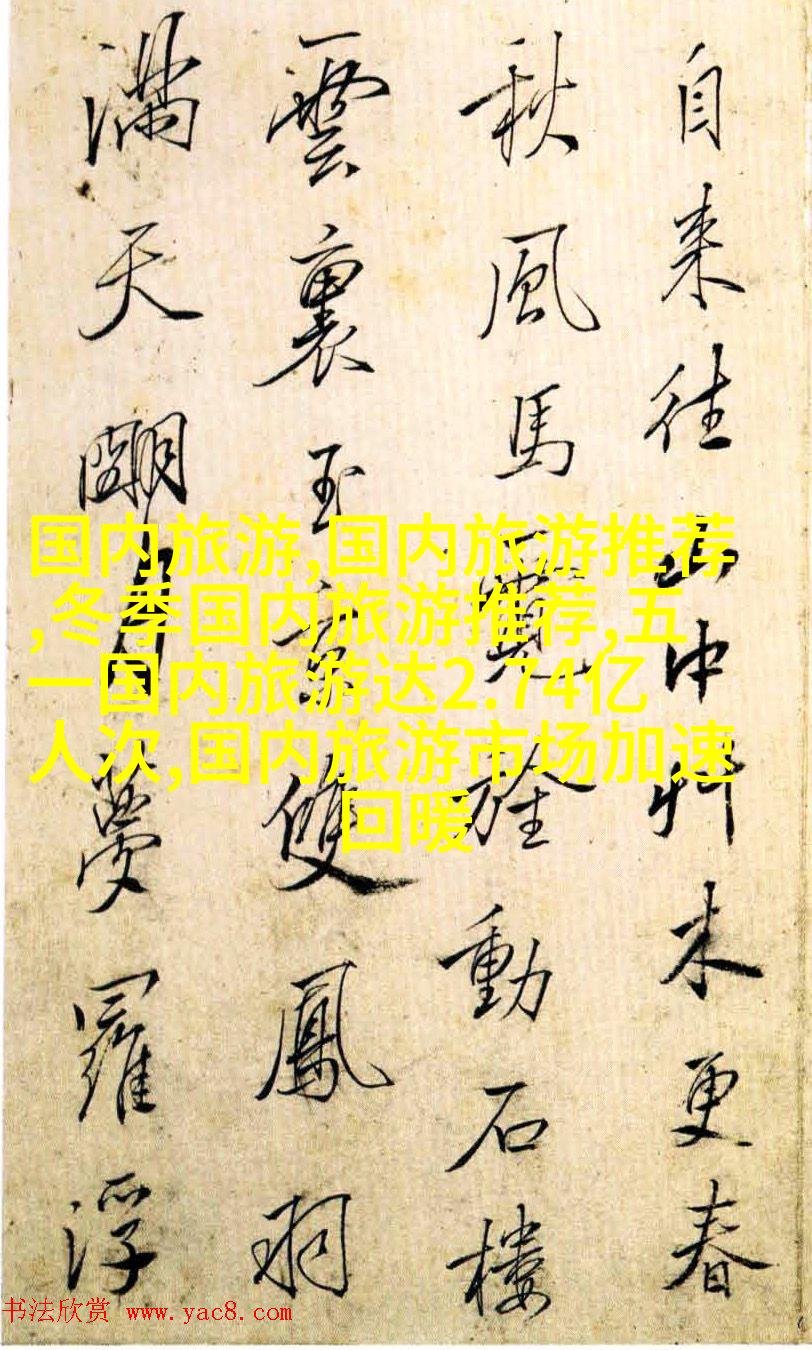 自来往山中草木更春
秋風馬覺旌動石樓
雲裏玉京雙鳳羽
满天明月夢羅浮
国内旅游,国内旅游推荐
,冬季国内旅游推荐,五
一国内旅游达2.74亿
人次,国内旅游市场加速
回暖
书法欣赏 www.yac8.com